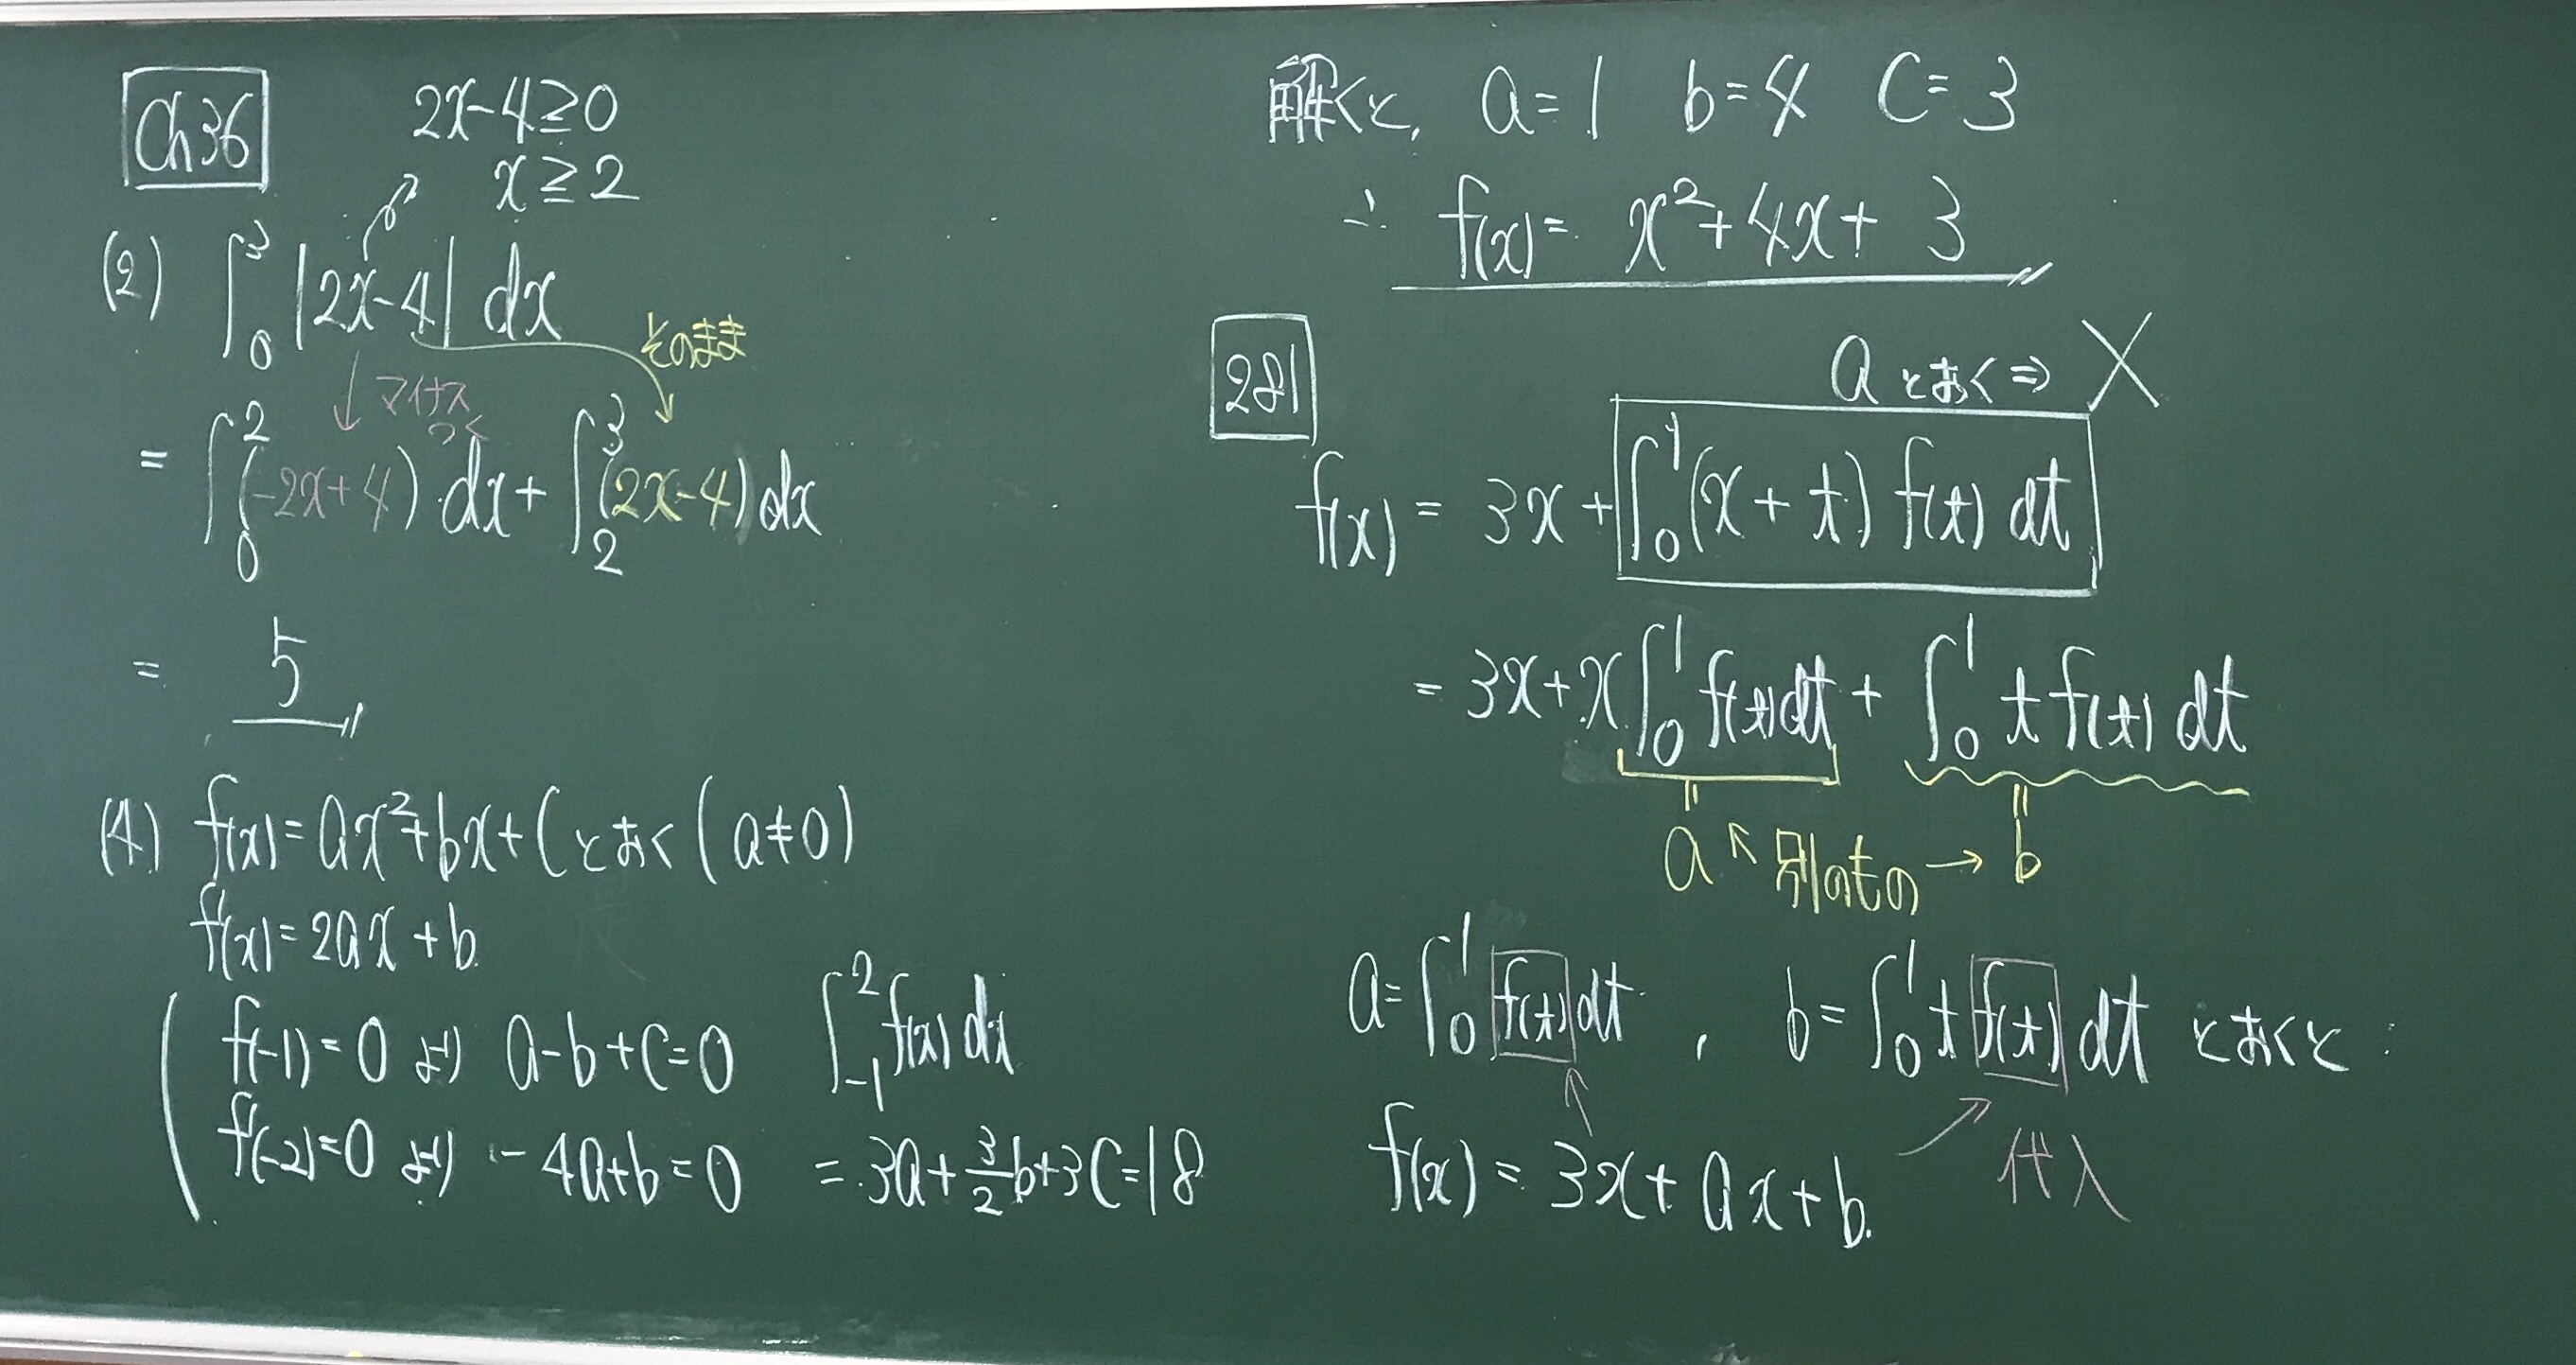 Ch36
2x-4≧0
x≧2
(2) ∫₀³ |2x-4| dx
そのまま
マイナス
つく
= ∫₀² (-2x+4) dx + ∫₂³ (2x-4) dx
= 5
(4) f(x) = ax²+bx+C とおく (a≠0)
f'(x) = 2ax+b
f(-1)=0 より a-b+C=0
f'(-2)=0 より -4a+b=0
∫₋₁² f(x) dx
= 3a+3/2b+3C=18
解くと, a=1 b=4 C=3
∴ f(x)= x²+4x+3
281
aとおく⇒×
f(x) = 3x + ∫₀¹ (x+t) f(t) dt
= 3x+x∫₀¹ f(t)dt + ∫₀¹ t f(t) dt
a ↖ 別のもの → b
a=∫₀¹ f(t)dt, b=∫₀¹ t f(t) dt とおくと
f(x) = 3x+ax+b
代入